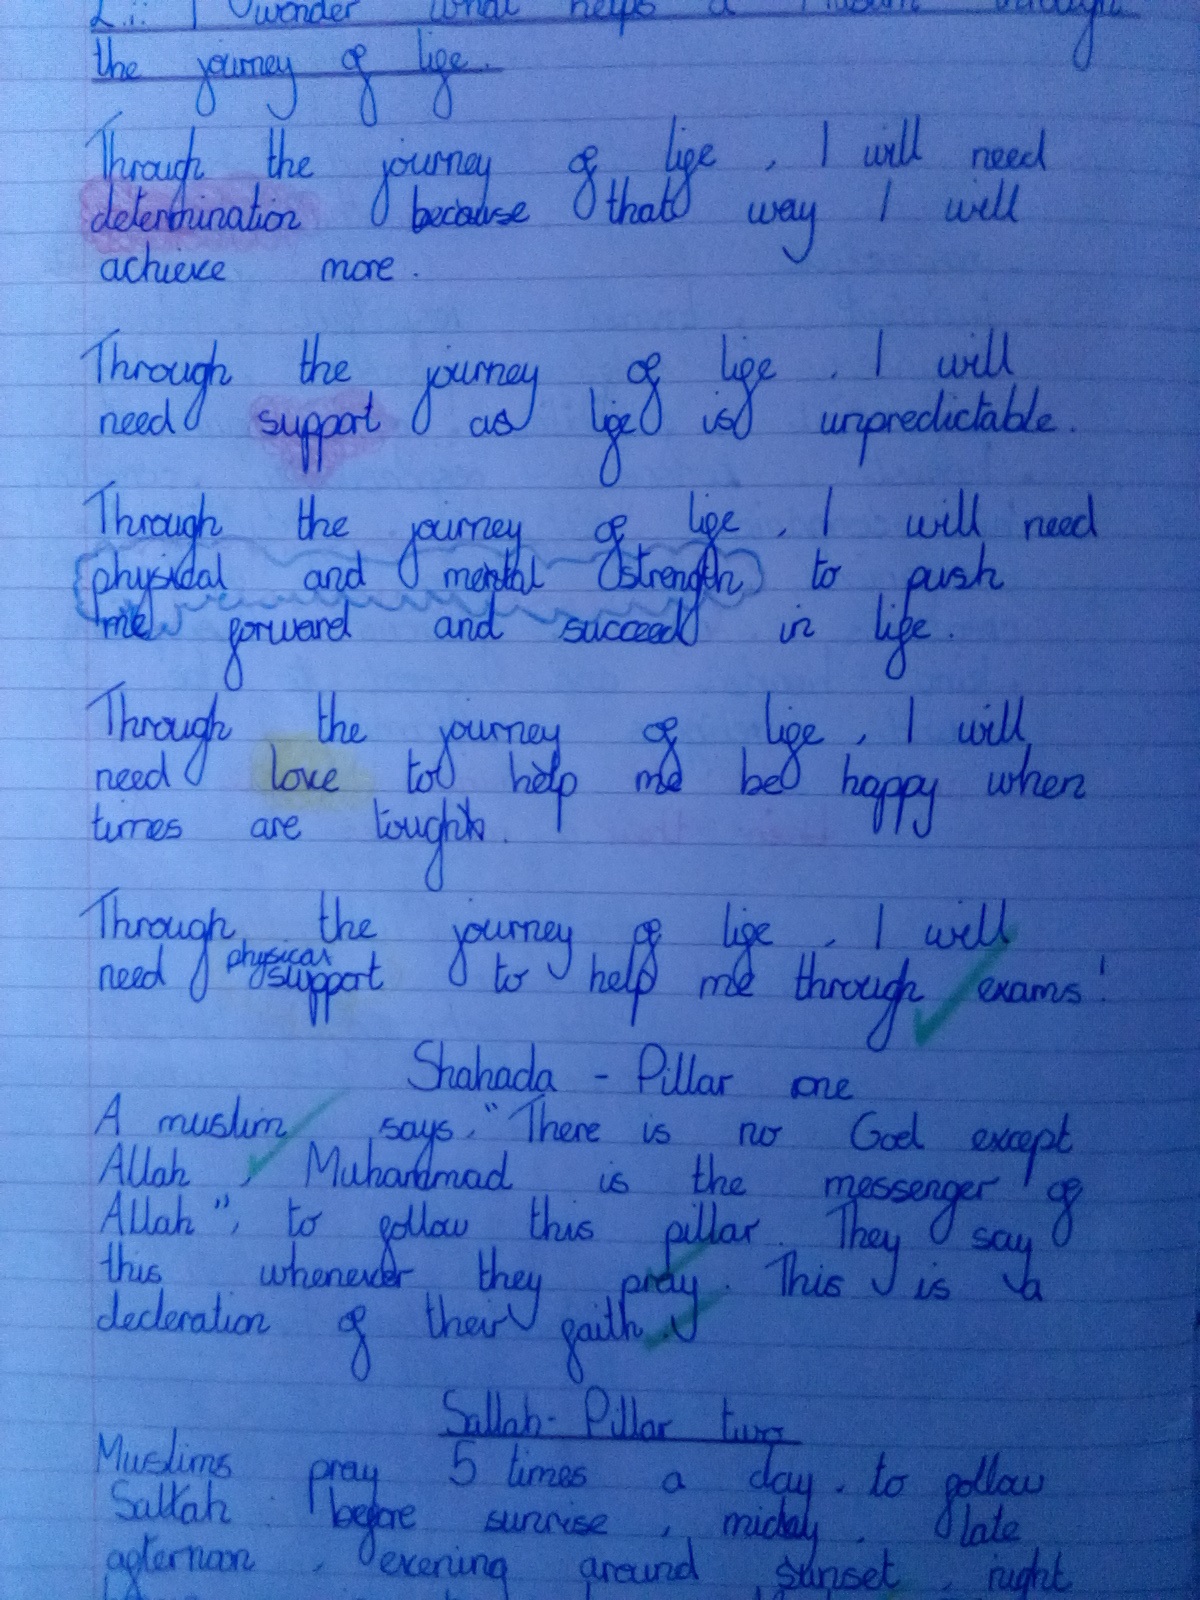 L.i: I wonder what helps a Muslim through
the journey of life.
Through the journey of life, I will need
determination because that way I will
achieve more.
Through the journey of life, I will
need support as life is unpredictable.
Through the journey of life, I will need
physical and mental strength to push
me forward and succeed in life.
Through the journey of life, I will
need love to help me be happy when
times are tough.
Through the journey of life, I will
need physical support to help me through exams!
Shahada - Pillar one
A muslim says, "There is no God except
Allah, Muhammad is the messenger of
Allah", to follow this pillar. They say
this whenever they pray. This is a
decleration of their faith.
Sallah- Pillar two
Muslims pray 5 times a day, to follow
Sallah before sunrise, midday, late
afternoon, evening around sunset, night